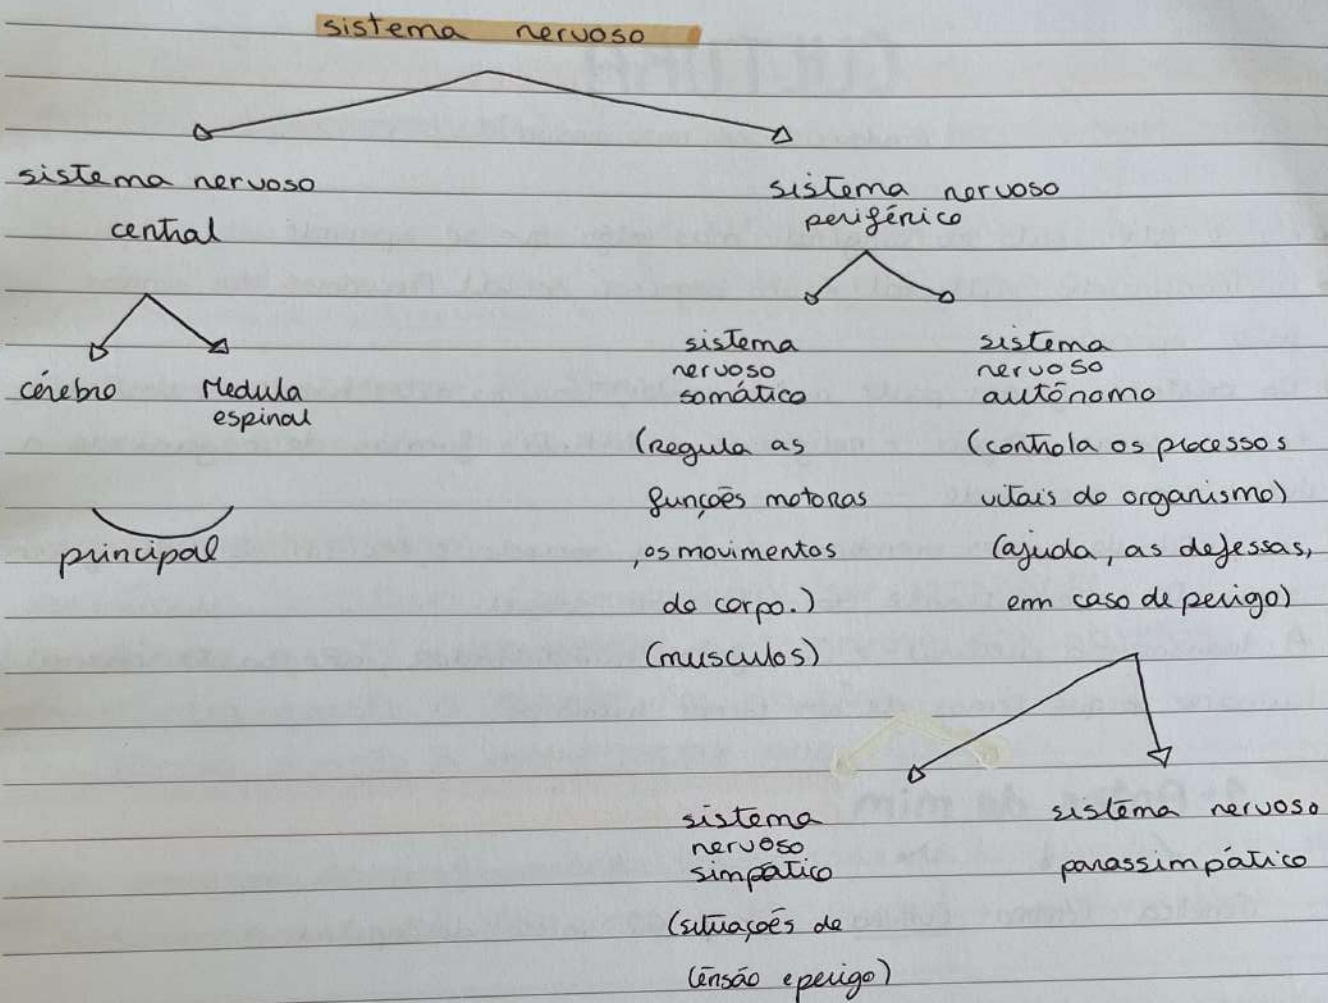 sistema nervoso
sistema nervoso
central
cérebro
Medula
espinal
principal
sistema nervoso
periférico
sistema
nervoso
somático
(regula as
funções motoras
, os movimentos
do corpo.)
(musculos)
sistema
nervoso
autónomo
(controla os processos
vitais do organismo)
(ajuda, as defessas,
em caso de perigo)
sistema
nervoso
simpático
(situações de
tensão e perigo)
sistema nervoso
parassimpático